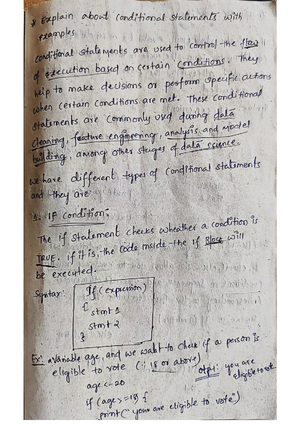 * Explain about conditional statements with
examples.
conditional statements are used to control the flow
of execution based on certain conditions. They
help to make decisions or perform specific actions
when certain conditions are met. These conditional
statements are commonly used during data
cleaning, feature engineering, analysis and model
building, among other stages of data science.
we have different types of conditional statements
and they are
IF condition:
The if statement checks wheather a condition is
TRUE. if it is, the code inside the if Block will
be executed.
Syntax: If (expression)
{
stmt 1
stmt 2
}
Ex: a variable age, and we want to check if a person is
eligible to vote (18 or above)
age <- 20
otpt: you are
eligible to vote
if (age >= 18) {
print("your are eligible to vote")